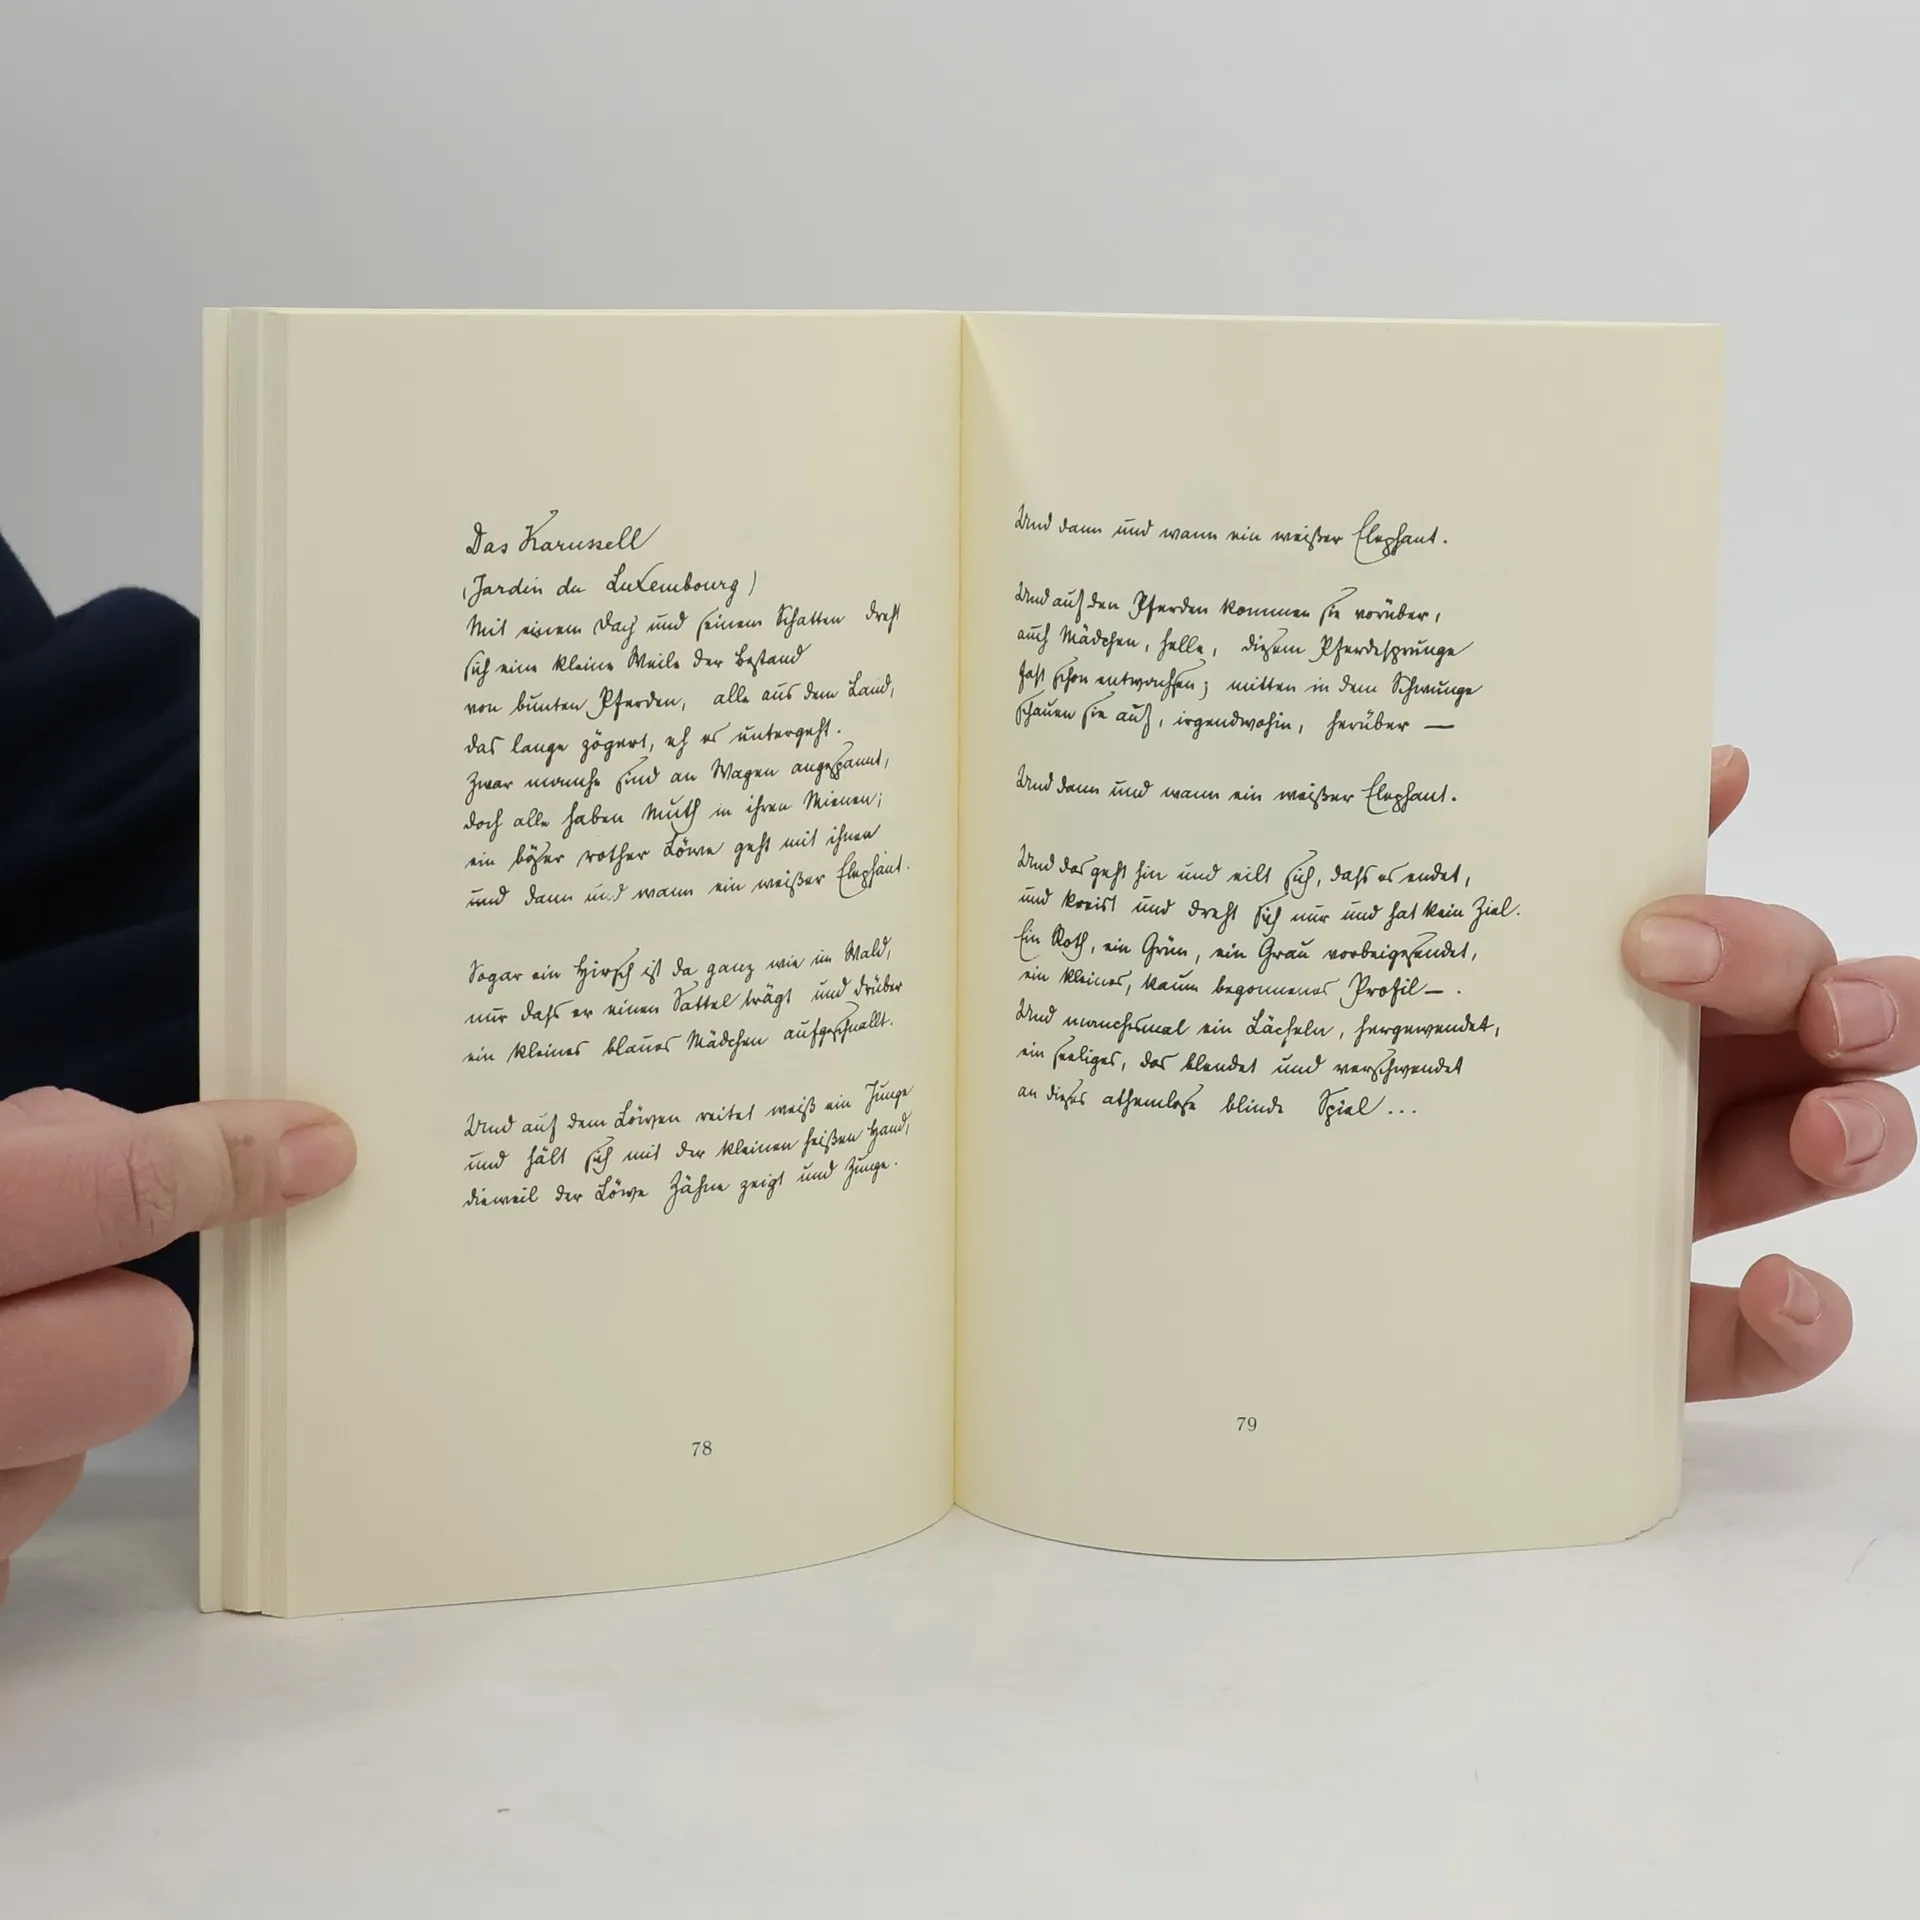 Das Karussell
(Jardin du Luxembourg)
Mit einem Dach und seinem Schatten dreht
sich eine kleine Weile der Bestand
von bunten Pferden, alle aus dem Land,
das lange zögert, eh es untergeht.
Zwar manche sind an Wagen angespannt,
doch alle haben Muth in ihren Mienen;
ein böser rother Löwe geht mit ihnen
und dann und wann ein weißer Elephant.
Sogar ein Hirsch ist da ganz wie im Wald,
nur dass er einen Sattel trägt und drüber
ein kleines blaues Mädchen aufgeschnallt.
Und auf dem Löwen reitet weiß ein Junge
und hält sich mit der kleinen heißen Hand,
dieweil der Löwe Zähne zeigt und Zunge.
78
Und dann und wann ein weißer Elephant.
Und auf den Pferden kommen sie vorüber,
auch Mädchen, helle, diesem Pferdesprunge
fast schon entwachsen; mitten in dem Schwunge
schauen sie auf, irgendwohin, herüber —
Und dann und wann ein weißer Elephant.
Und das geht hin und eilt sich, dass es endet,
und kreist und dreht sich nur und hat kein Ziel.
Ein Roth, ein Grün, ein Grau vorbeigesendet,
ein kleines, kaum begonnenes Profil —.
Und manchesmal ein Lächeln, hergewendet,
ein seeliges, das blendet und verschwendet
an dieses athemlose blinde Spiel ...
79